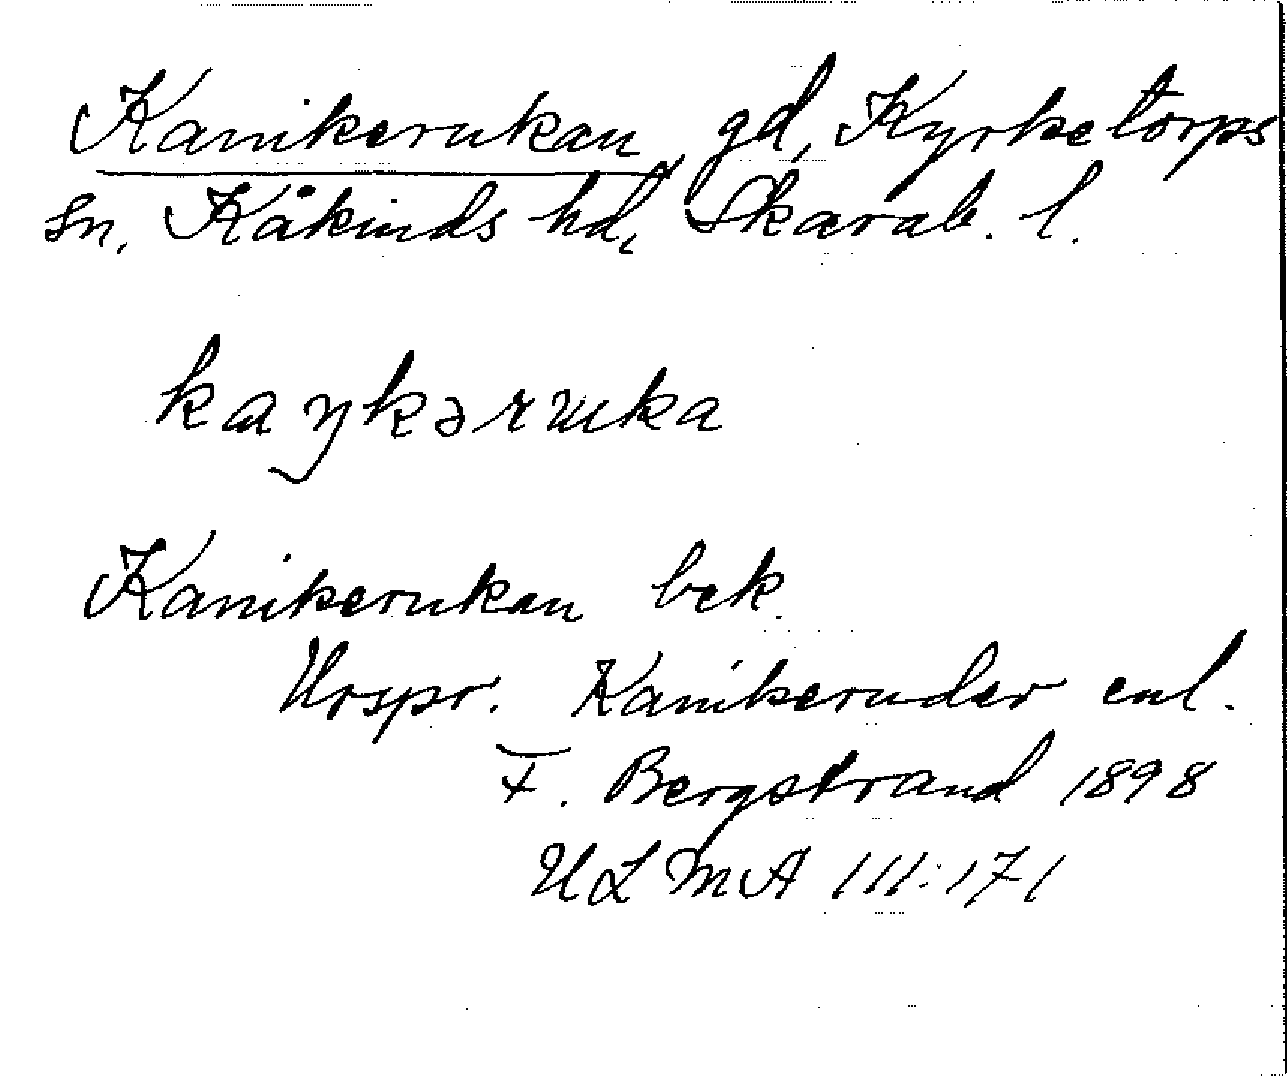 Kanikerukan, gd, Kyrketorps
sn, Kåkinds hd, Skarab. l.
kaŋkəruka
Kanikerukan bek.
Urspr. Kanikeruder enl.
F. Bergstrand 1898
ULMA 111:171